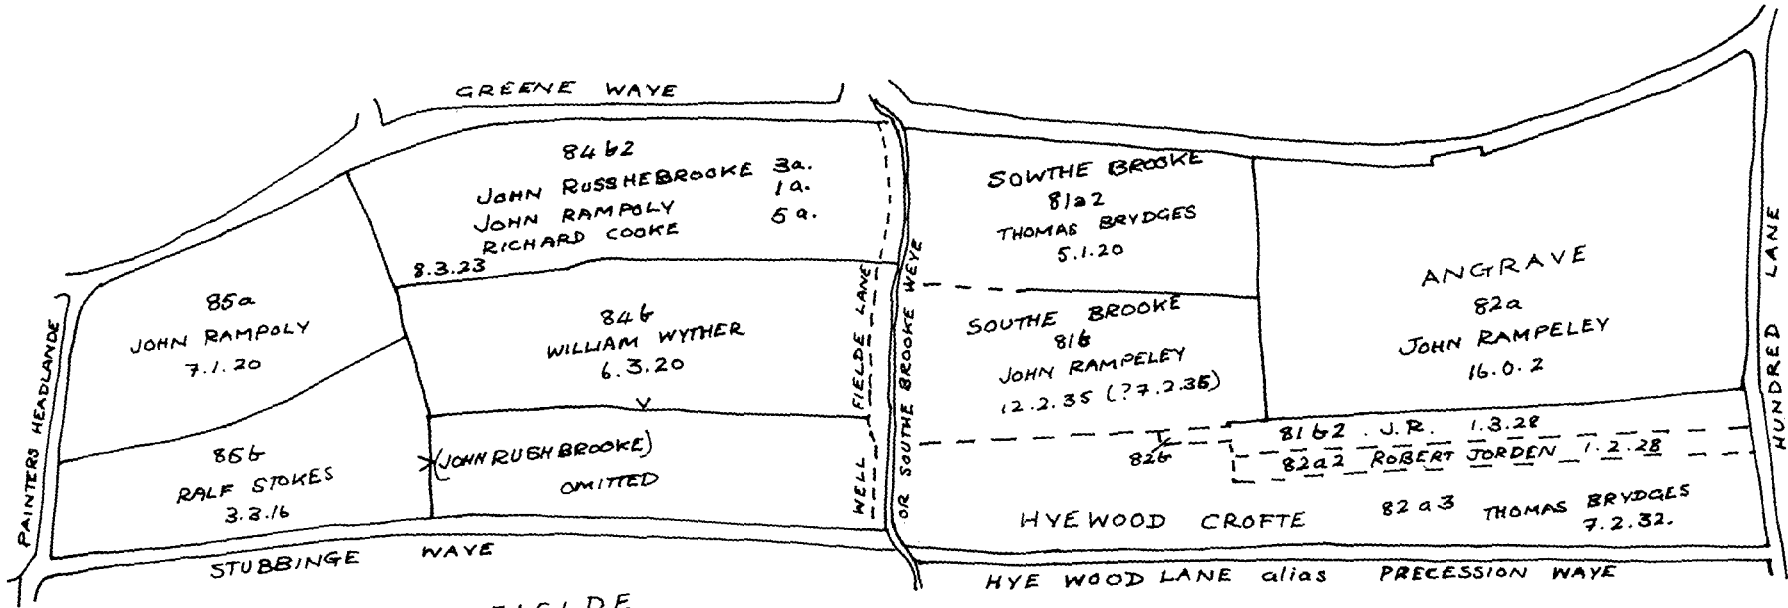 GREENE WAYE
84b2
JOHN RUSSHEBROOKE 3a.
JOHN RAMPOLY 1a.
RICHARD COOKE 5a.
8.3.23
85a
JOHN RAMPOLY
7.1.20
84b
WILLIAM WYTHER
6.3.20
85b
RALF STOKES
3.3.16
(JOHN RUSHBROOKE)
OMITTED
PAINTERS HEADLANDE
STUBBINGE WAYE
WELL FIELDE LANE
OR SOUTHE BROOKE WEYE
SOWTHE BROOKE
81a2
THOMAS BRYDGES
5.1.20
SOUTHE BROOKE
81b
JOHN RAMPELEY
12.2.35 (?7.2.35)
ANGRAVE
82a
JOHN RAMPELEY
16.0.2
HUNDRED LANE
81b2 . J.R. 1.3.28
82b
82a2 ROBERT JORDEN 1.2.28
HYEWOOD CROFTE
82a3 THOMAS BRYDGES
7.2.32.
HYE WOOD LANE alias PRECESSION WAYE